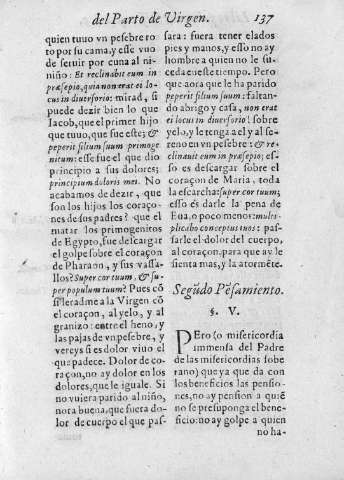 del Parto de Virgen. 137
quien tuuo vn pesebre ro
to por su cama, y esse vuo
de seruir por cuna al ni-
niño: Et reclinabit eum in
præsepio, quia non erat ei lo-
cus in diuersorio: mirad, si
puede dezir bien lo que
Iacob, que el primer hijo
que tuuo, que fue estes; &
peperit filium suum primoge
nitum: esse fue el que dio
principio a sus dolores;
principium doloris mei. No
acabamos de dezir, que
son los hijos los coraço-
nes de sus padres? que el
matar los primogenitos
de Egypto, fue descargar
el golpe sobre el coraçon
de Pharaon, y sus vassa-
llos? Super cor tuum, & su-
per populum tuum? Pues cõ
siderad me a la Virgen cõ
el coraçon, al yelo, y al
granizo: entre el heno, y
las pajas de vn pesebre, y
vereys si es dolor viuo el
que padece. Dolor de co-
raçon, no ay dolor en los
dolores, que le iguale. Si
no vuiera parido al niño,
nora buena, que fuera do-
lor de cuerpo el que pas-
sara: fuera tener elados
pies y manos, y esso no ay
hombre a quien no le su-
ceda en este tiempo. Pero
que aora que le ha parido
peperit filium suum: faltan-
do abrigo y casa, non erat
ei locus in diuersorio! sobre
yelo, y le tenga a el y al se-
reno en vn pesebre: & re-
clinauit eum in præsepio; es-
so es descargar sobre el
coraçon de Maria, toda
la escarcha: super cor tuum;
esso es darle la pena de
Eua, o poco menor: multi-
plicabo conceptus tuos: pas-
sarle el dolor del cuerpo,
al coraçon, para que ay le
sienta mas, y la atormēte.
Segũdo Pēsamiento.
§. V.
PEro (o misericordia
immensa del Padre
de las misericordias sobe
rano) que ya que da con
los beneficios las pensio-
nes, no ay pension a quiē
no se presuponga el bene-
ficio: no ay golpe a quien
no ha-